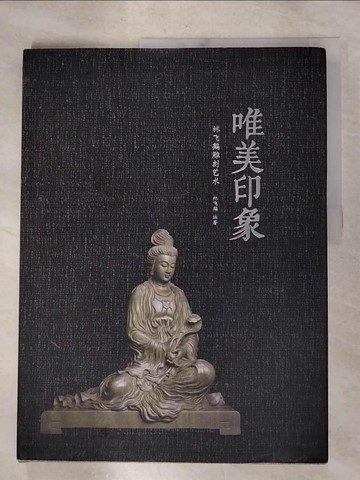 唯美印象
林飞鹤雕刻艺术
林飞鹤 编著